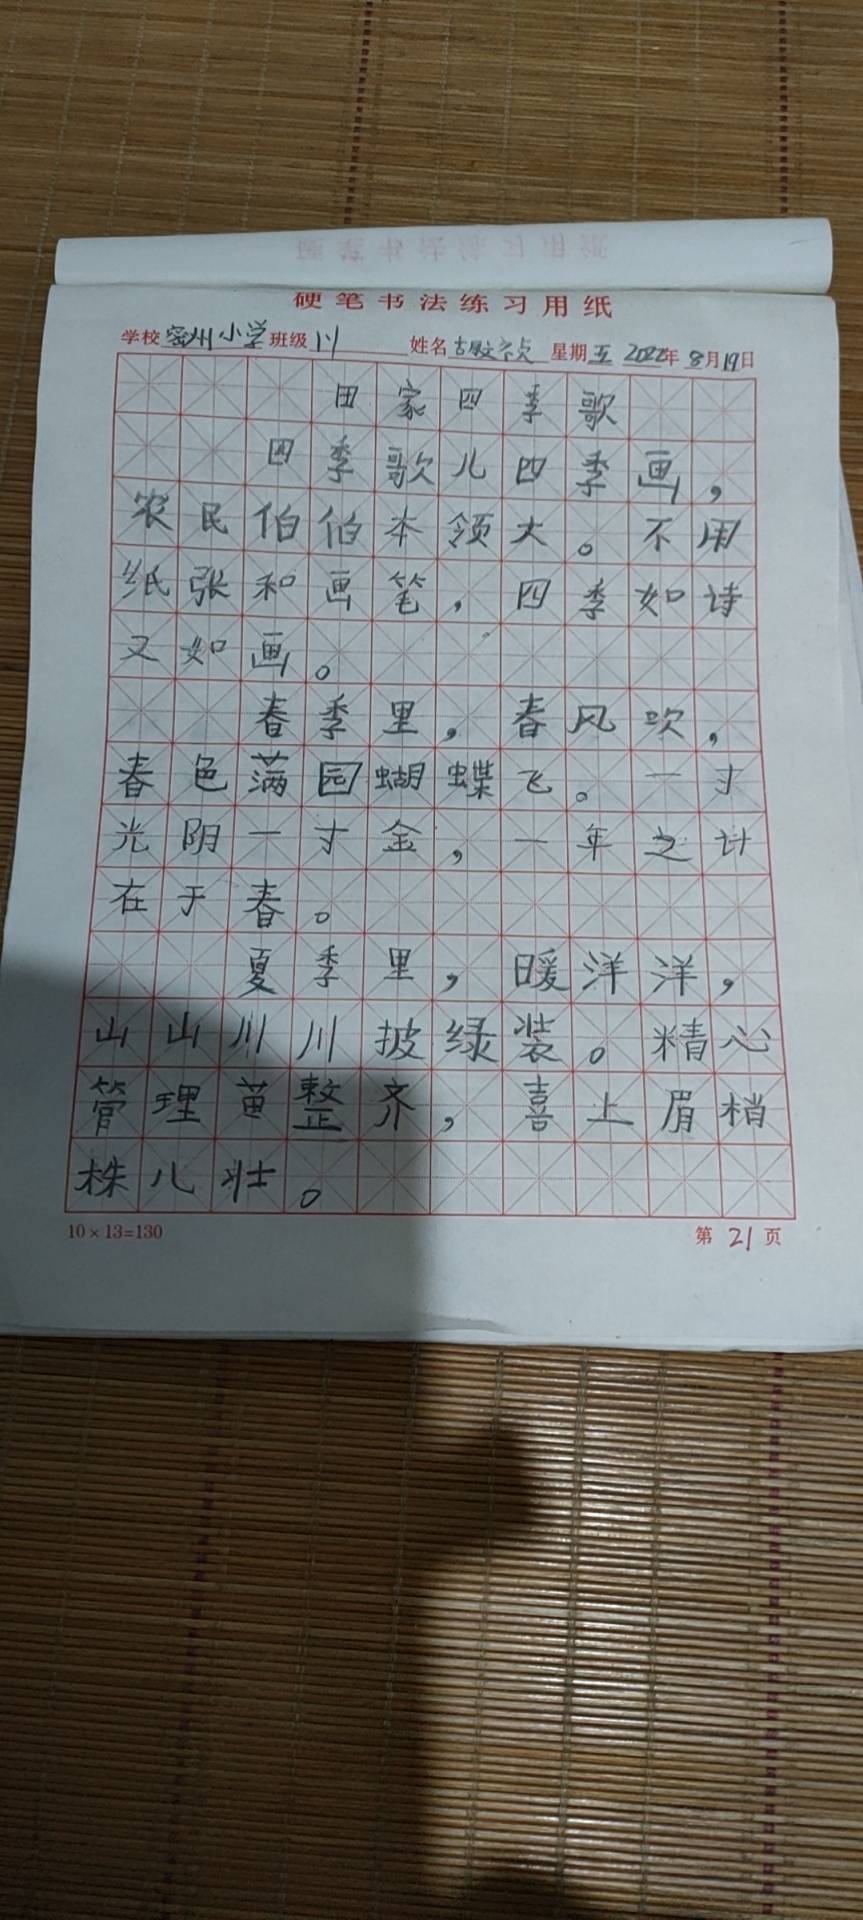 硬笔书法练习用纸
学校 密州小学 班级 姓名 星期五 2022年8月19日
田家四季歌
四季歌儿四季画，
农民伯伯本领大。不用
纸张和画笔，四季如诗
又如画。
春季里，春风吹，
春色满园蝴蝶飞。一寸
光阴一寸金，一年之计
在于春。
夏季里，暖洋洋，
山山川川披绿装。精心
管理苗整齐，喜上眉梢
株儿壮。
10×13=130 第21页